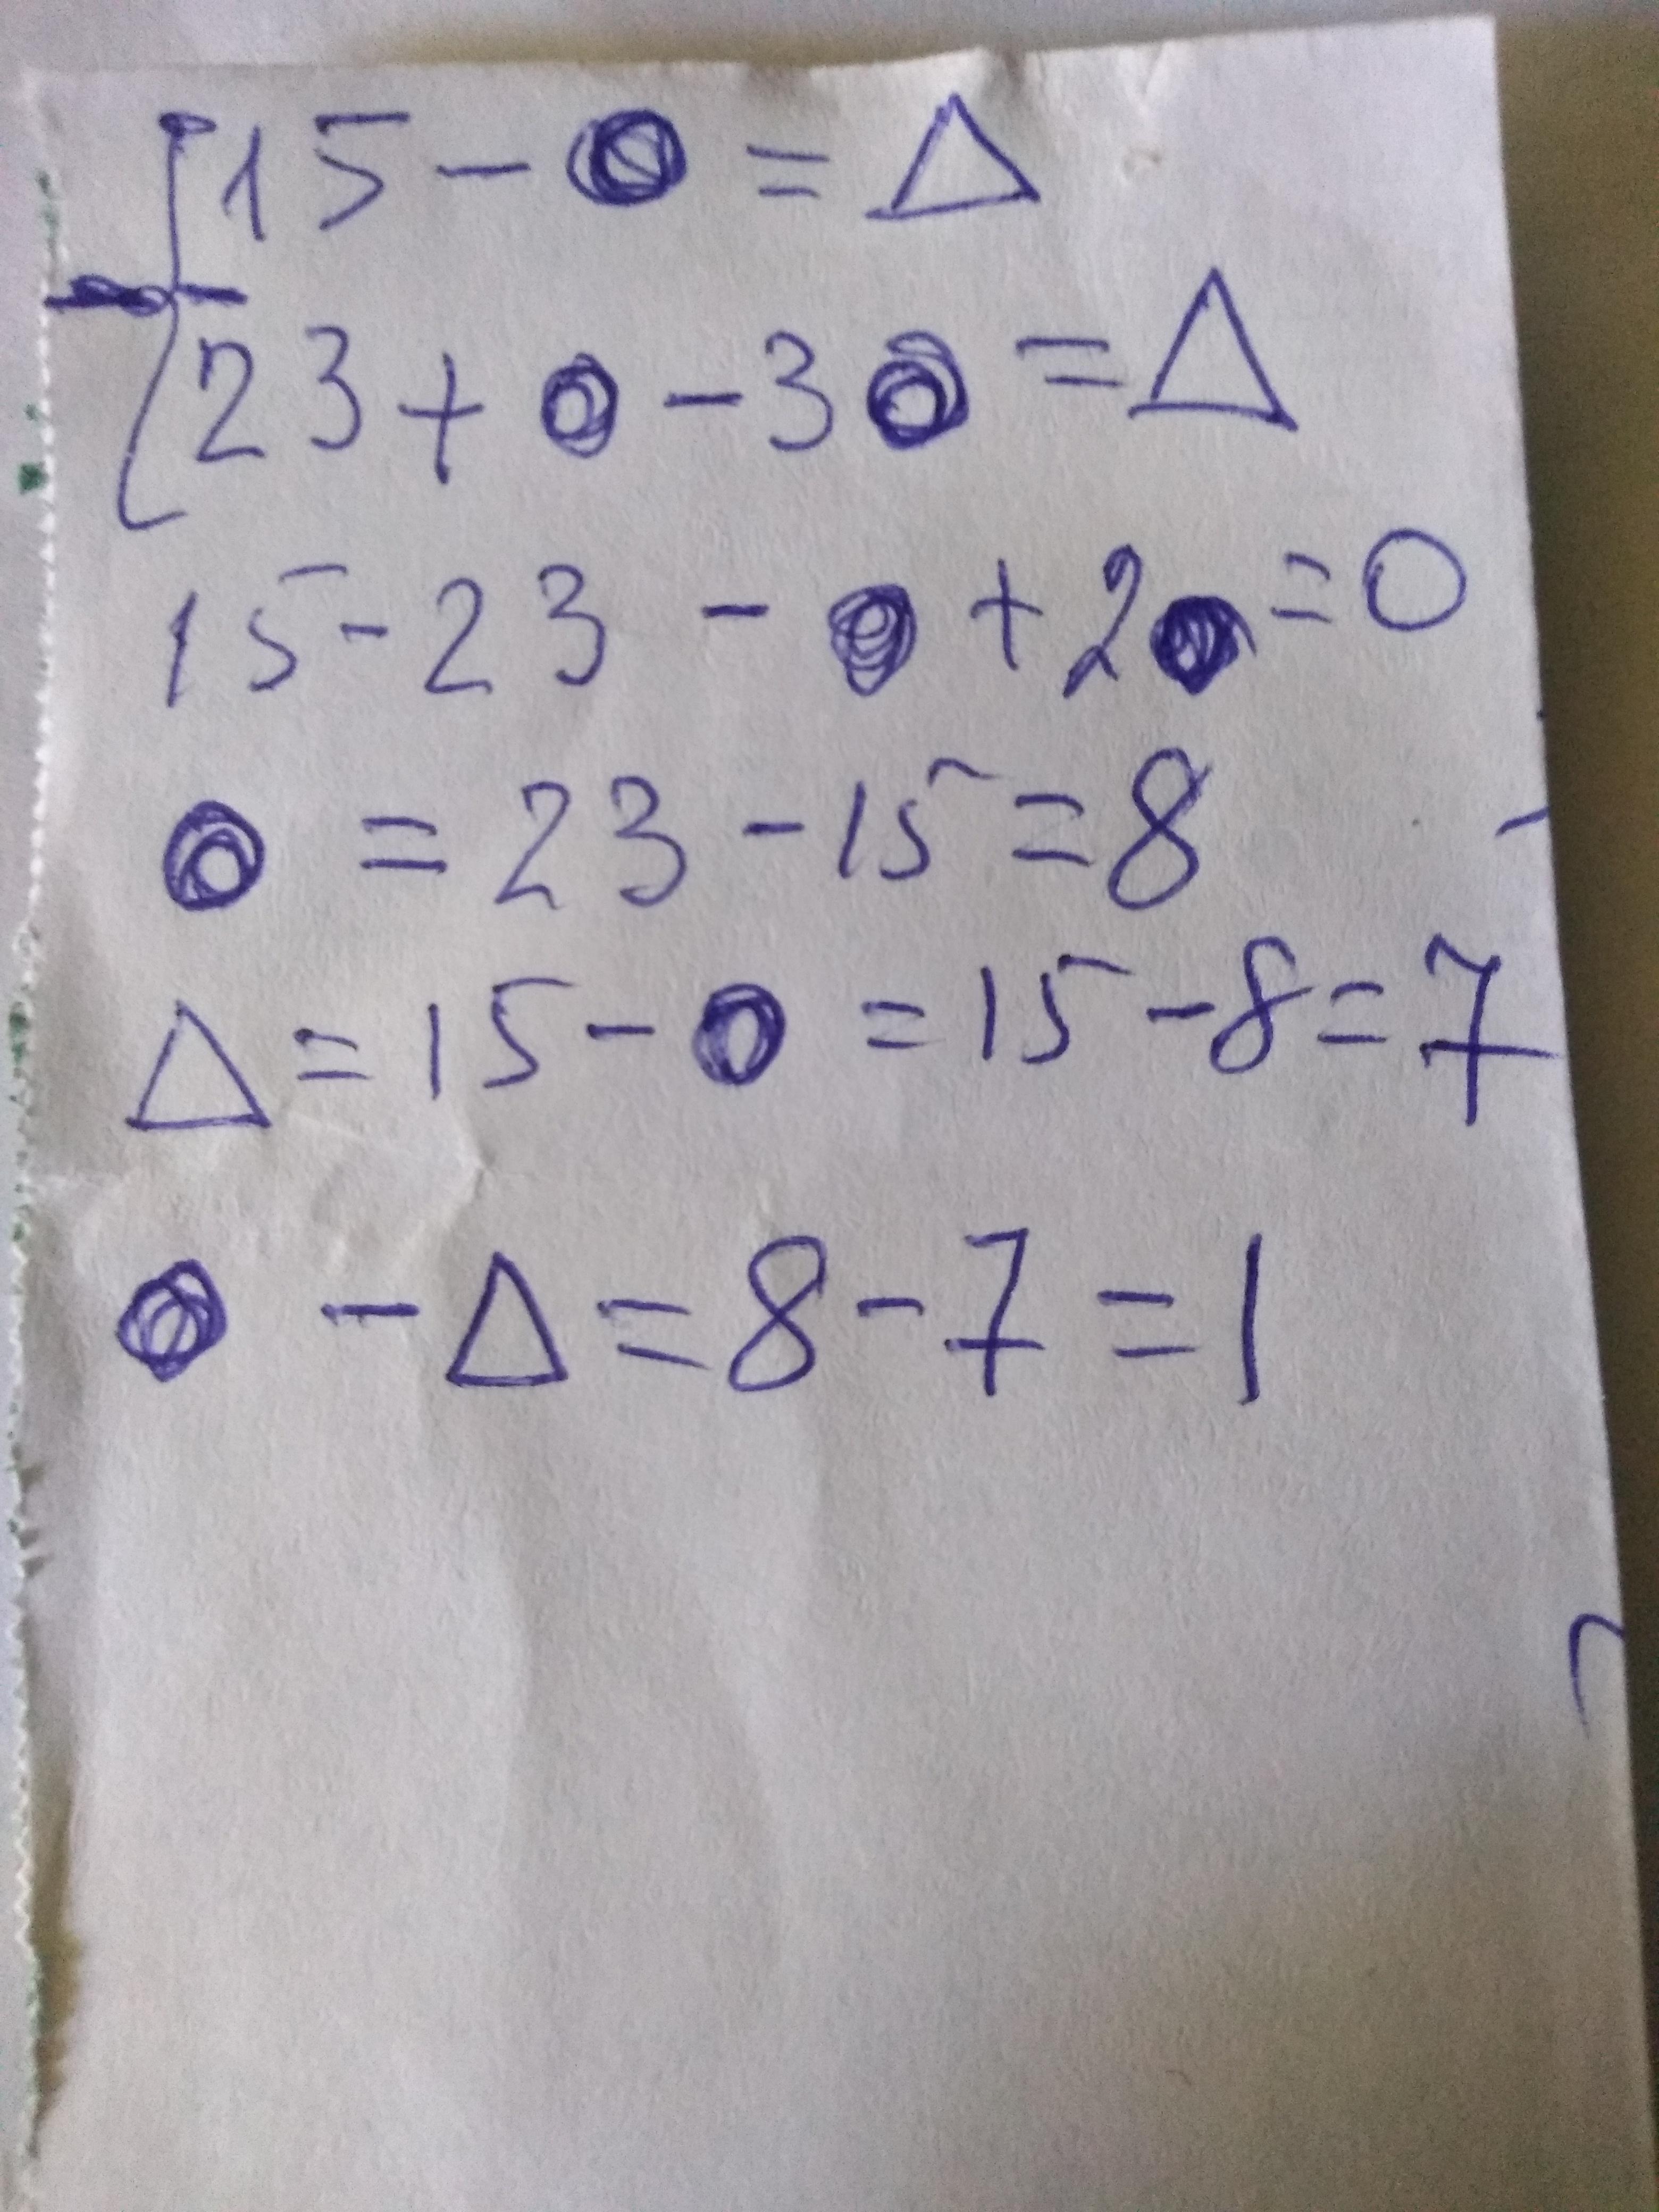 15 - ● = △
23 + ● - 3● = △
15 - 23 - ● + 2● = 0
● = 23 - 15 = 8
△ = 15 - ● = 15 - 8 = 7
● - △ = 8 - 7 = 1